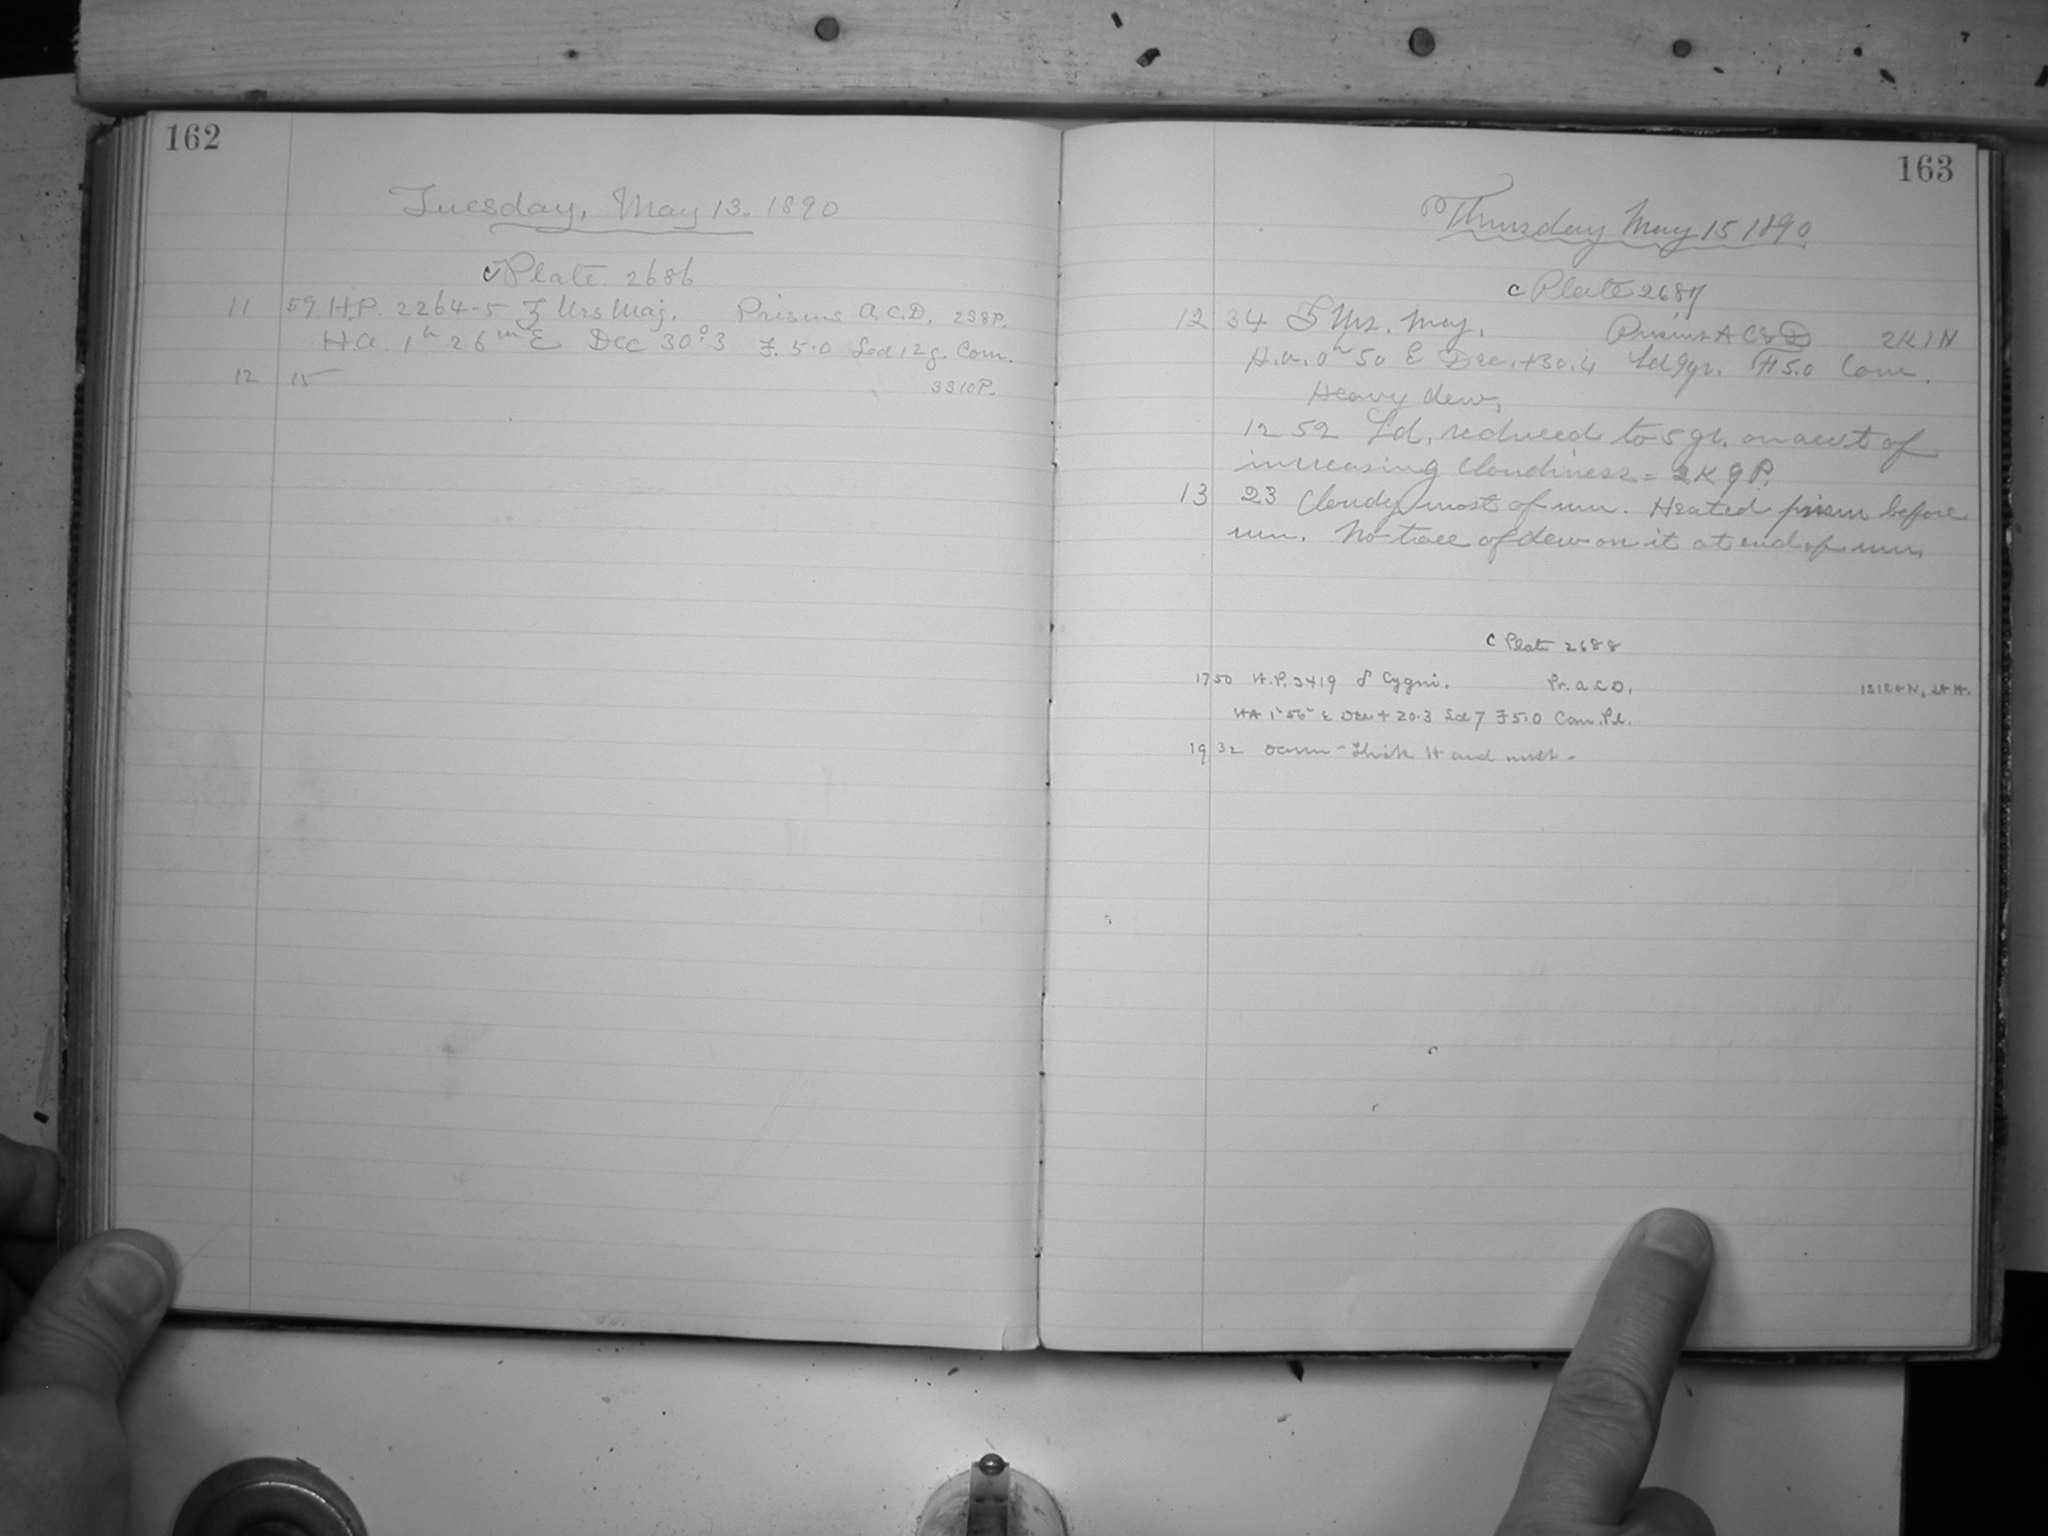 162
Tuesday, May 13. 1890
c Plate 2686
11 59 H.P. 2264-5 ξ Urs Maj. Prisms A.C.D. 238P.
H.A. 1h 26m E Dec 30°.3 F. 5.0 Led 12g. Com.
12 15 3310P.
163
Thursday May 15 1890
c Plate 2687
12 34 ξ Urs. Maj. Prisms A C & D 2K1N
H.a. 0h 50 E Dec. +30.4 Ld 9gr. F 5.0 Com.
Heavy dew.
12 52 Ld. reduced to 5 gr. on acct of
increasing cloudiness = 2K9P.
13 23 Cloudy most of run. Heated prism before
run. No trace of dew on it at end of run.
c Plate 2688
17 50 H.P. 3419 δ Cygni. Pr. a C D.
HA 1h 56m E Dec + 20.3 Led 7 F 5.0 Com. Pl.
19 32 Dawn - Thick H and mist -